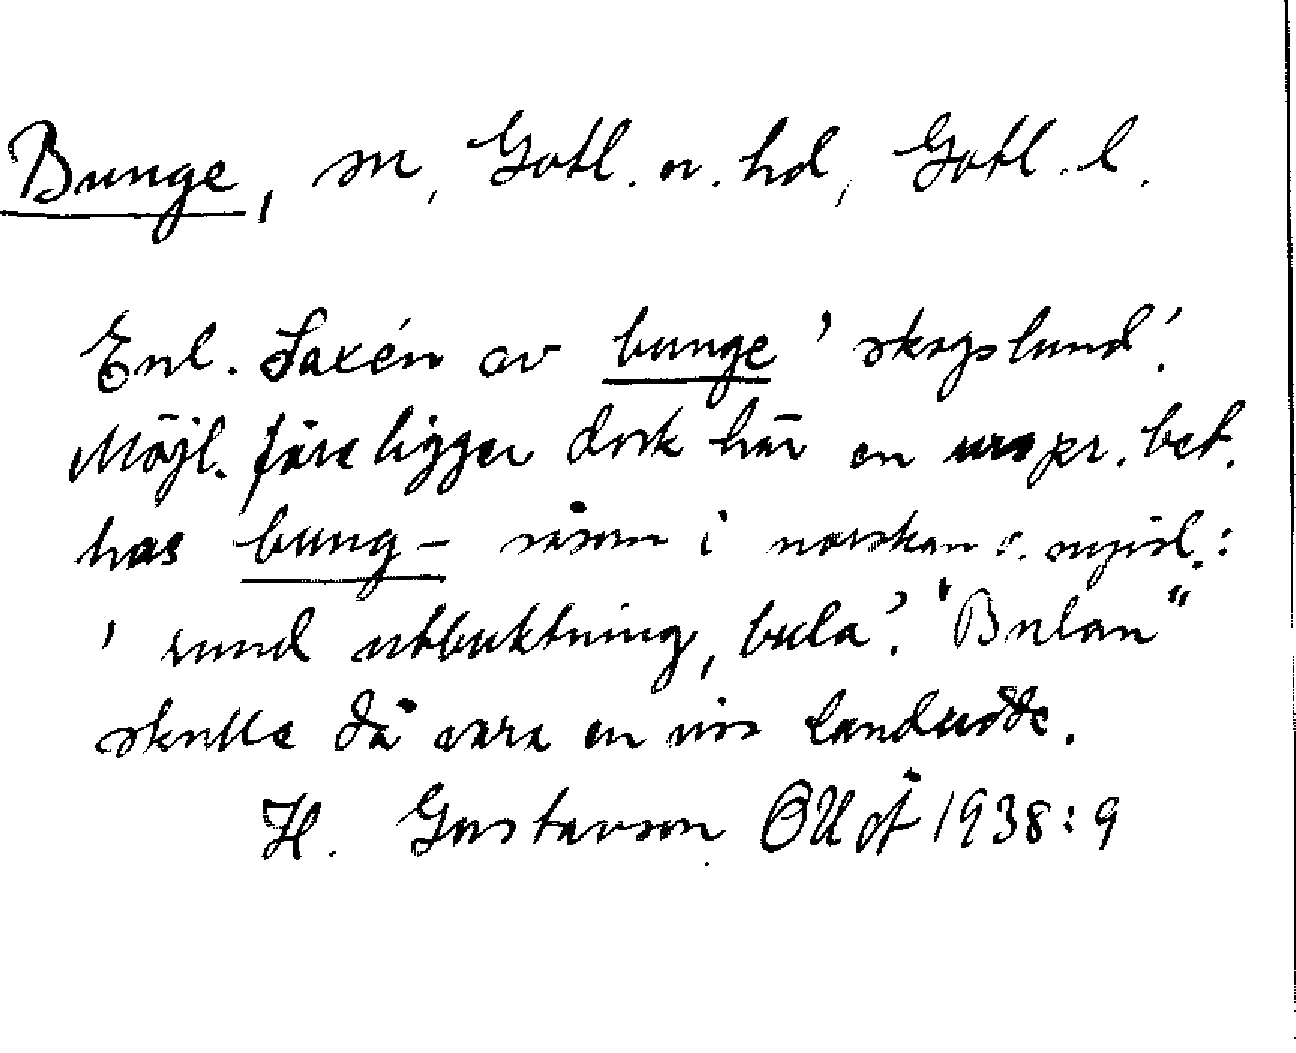 Bunge, sn, Gotl. n. hd, Gotl. l.
Enl. Saxén av bunge 'skogslund'.
Möjl. föreligger dock här en urspr. bet.
hos bung- såsom i norskan o. nyisl.:
'rund utbuktning, bula'. "Bulan"
skulle då vara en viss landudde.
H. Gustavson OUÅ 1938:9